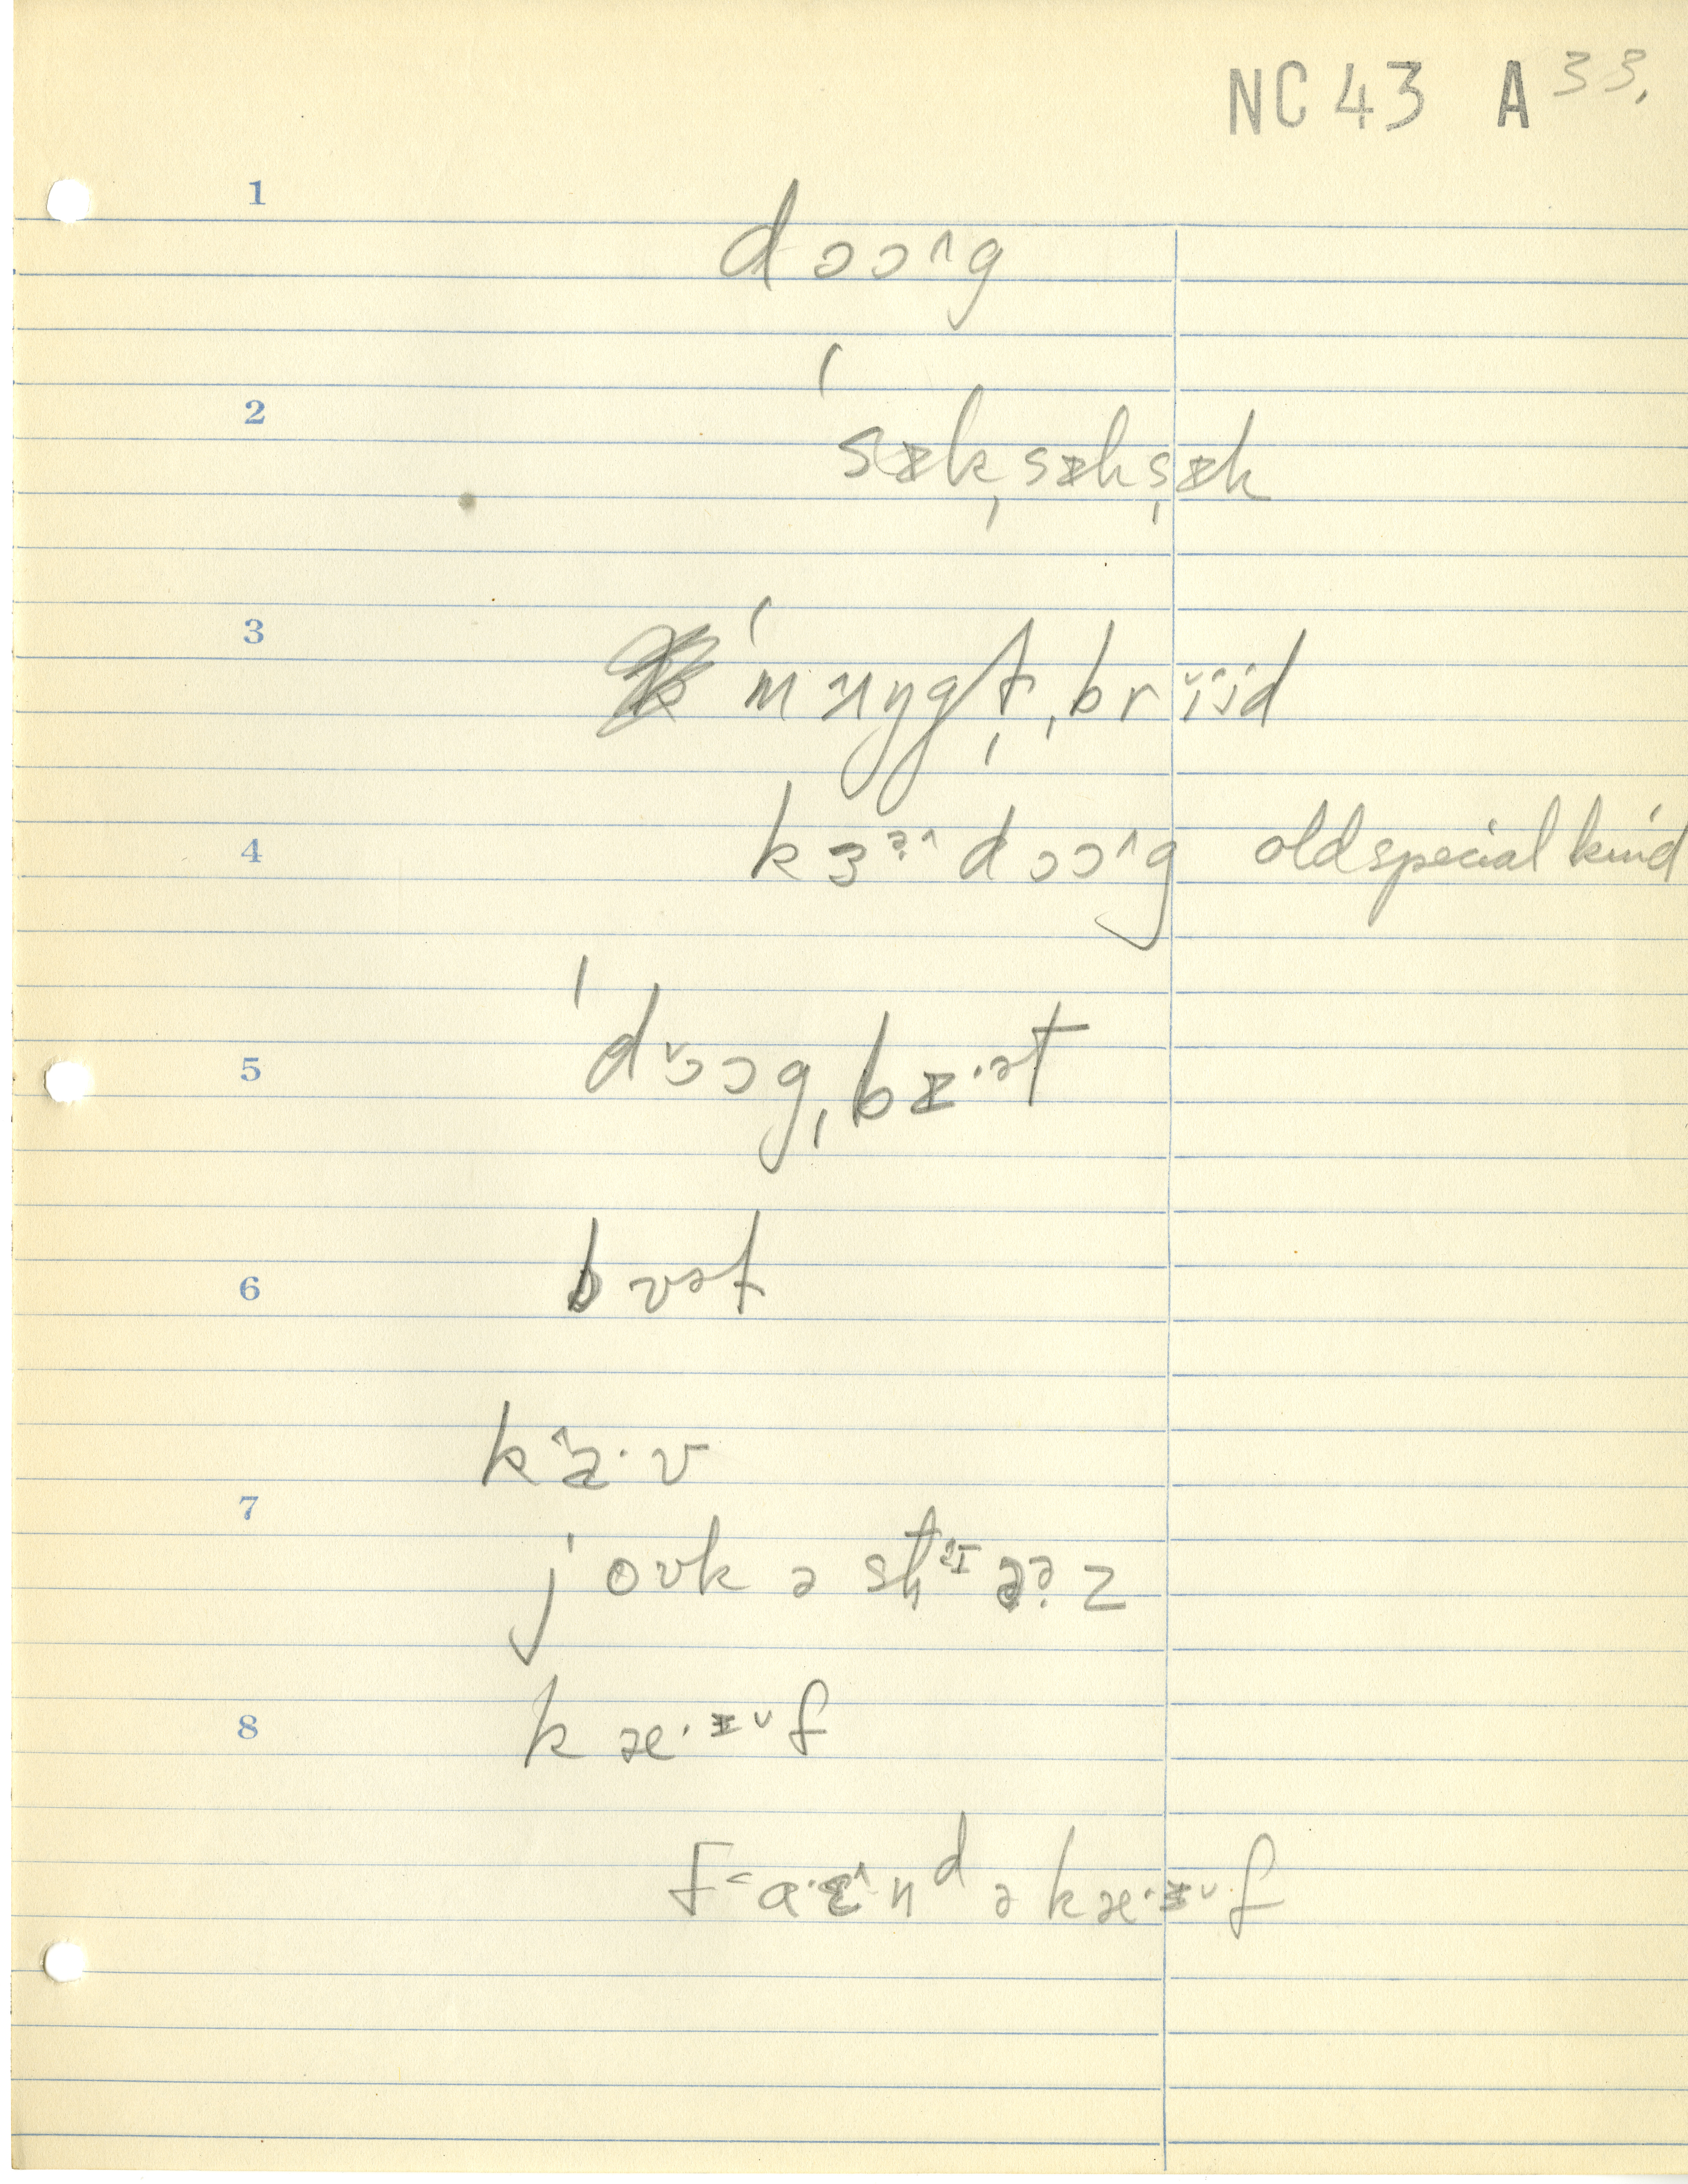 NC 43 A 33.
1
dɔɔ^g
2
ˈsɪkˌsɪkˌsɪk
3
ˈmʌŋgɹ̩ˌbriid
4
kɜɚ^dɔɔ^g old special kind
5
ˈdɔ̌ɔgˌbɪ·ət
6
bʊət
7
kæ̂·v
joʊk ə stɪɚz
8
kæ·ɪ˅f
fa·ɛ^nᵈ ə kæ·ɪ˅f